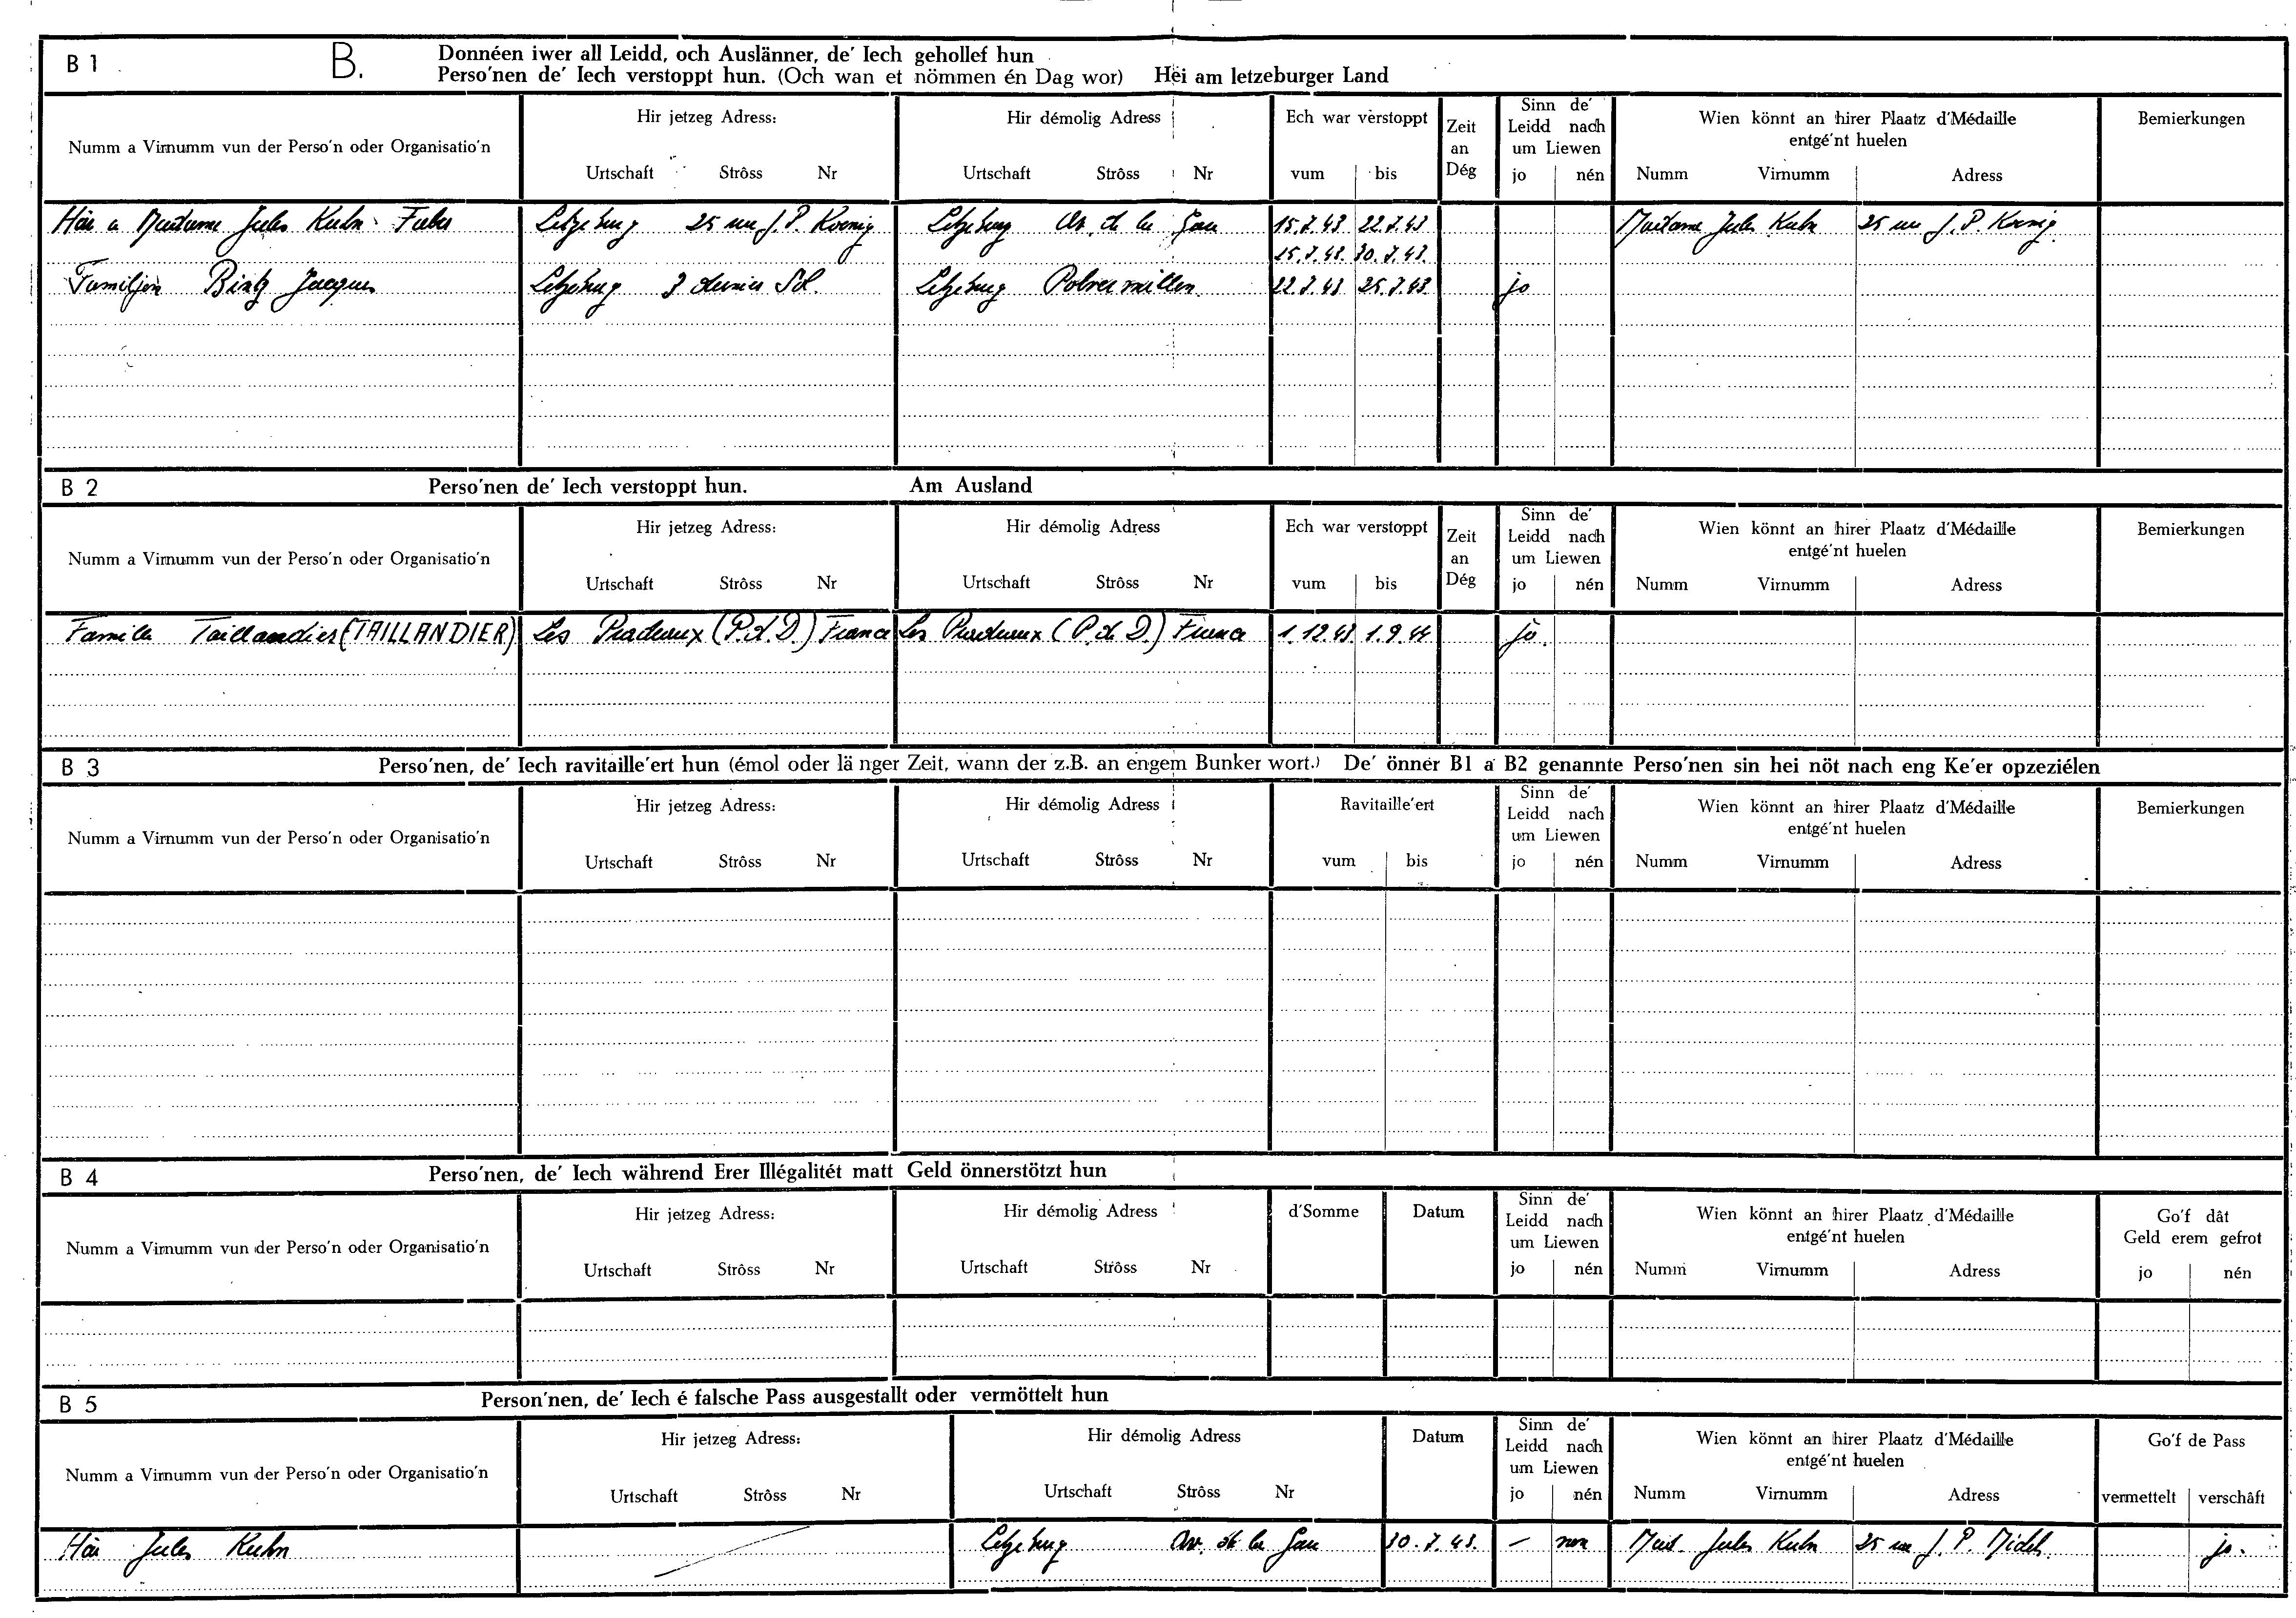 B 1 B. Donnéen iwer all Leidd, och Auslänner, de' Iech gehollef hun
Perso'nen de' Iech verstoppt hun. (Och wan et nömmen én Dag wor) Hei am letzeburger Land
Numm a Virnumm vun der Perso'n oder Organisatio'n
Hir jetzeg Adress:
Urtschaft Strôss Nr
Hir démolig Adress
Urtschaft Strôss Nr
Ech war verstoppt
vum bis
Zeit
an
Dég
Sinn de'
Leidd nach
um Liewen
jo nén
Wien könnt an hirer Plaatz d'Médaille
entgé'nt huelen
Numm Virnumm Adress
Bemierkungen
Här a Madame Jules Kuhn - Faber Letzeburg 25 rue J. P. Koenig Letzeburg Av. de la Gare 15.7.43 22.7.43 Madame Jules Kuhn 25 rue J. P. Koenig
25.7.43. 30.7.43.
Familjen Bintz Jacques Letzeburg 3 Letzeburg Polvermillen 22.7.43 25.7.43 jo
B 2 Perso'nen de' Iech verstoppt hun. Am Ausland
Numm a Virnumm vun der Perso'n oder Organisatio'n
Hir jetzeg Adress:
Urtschaft Strôss Nr
Hir démolig Adress
Urtschaft Strôss Nr
Ech war verstoppt
vum bis
Zeit
an
Dég
Sinn de'
Leidd nach
um Liewen
jo nén
Wien könnt an hirer Plaatz d'Médaille
entgé'nt huelen
Numm Virnumm Adress
Bemierkungen
Famille Taillandier (TAILLANDIER) Les Pradeaux (P.d.D.) France Les Pradeaux (P.d.D.) France 1.12.43. 1.9.44 jo.
B 3 Perso'nen, de' Iech ravitaille'ert hun (émol oder länger Zeit, wann der z.B. an engem Bunker wort.) De' önner B1 a B2 genannte Perso'nen sin hei nöt nach eng Ke'er opzeziélen
Numm a Virnumm vun der Perso'n oder Organisatio'n
Hir jetzeg Adress:
Urtschaft Strôss Nr
Hir démolig Adress
Urtschaft Strôss Nr
Ravitaille'ert
vum bis
Sinn de'
Leidd nach
um Liewen
jo nén
Wien könnt an hirer Plaatz d'Médaille
entgé'nt huelen
Numm Virnumm Adress
Bemierkungen
B 4 Perso'nen, de' Iech während Erer Illégalitét matt Geld önnerstötzt hun
Numm a Virnumm vun der Perso'n oder Organisatio'n
Hir jetzeg Adress:
Urtschaft Strôss Nr
Hir démolig Adress
Urtschaft Strôss Nr
d'Somme
Datum
Sinn de'
Leidd nach
um Liewen
jo nén
Wien könnt an hirer Plaatz d'Médaille
entgé'nt huelen
Numm Virnumm Adress
Go'f dât
Geld erem gefrot
jo nén
B 5 Person'nen, de' Iech é falsche Pass ausgestallt oder vermöttelt hun
Numm a Virnumm vun der Perso'n oder Organisatio'n
Hir jetzeg Adress:
Urtschaft Strôss Nr
Hir démolig Adress
Urtschaft Strôss Nr
Datum
Sinn de'
Leidd nach
um Liewen
jo nén
Wien könnt an hirer Plaatz d'Médaille
entgé'nt huelen
Numm Virnumm Adress
Go'f de Pass
vermettelt verschâft
Här Jules Kuhn Letzeburg Av. de la Gare 30.7.43. – non Mad. Jules Kuhn 25 rue J. P. jo.